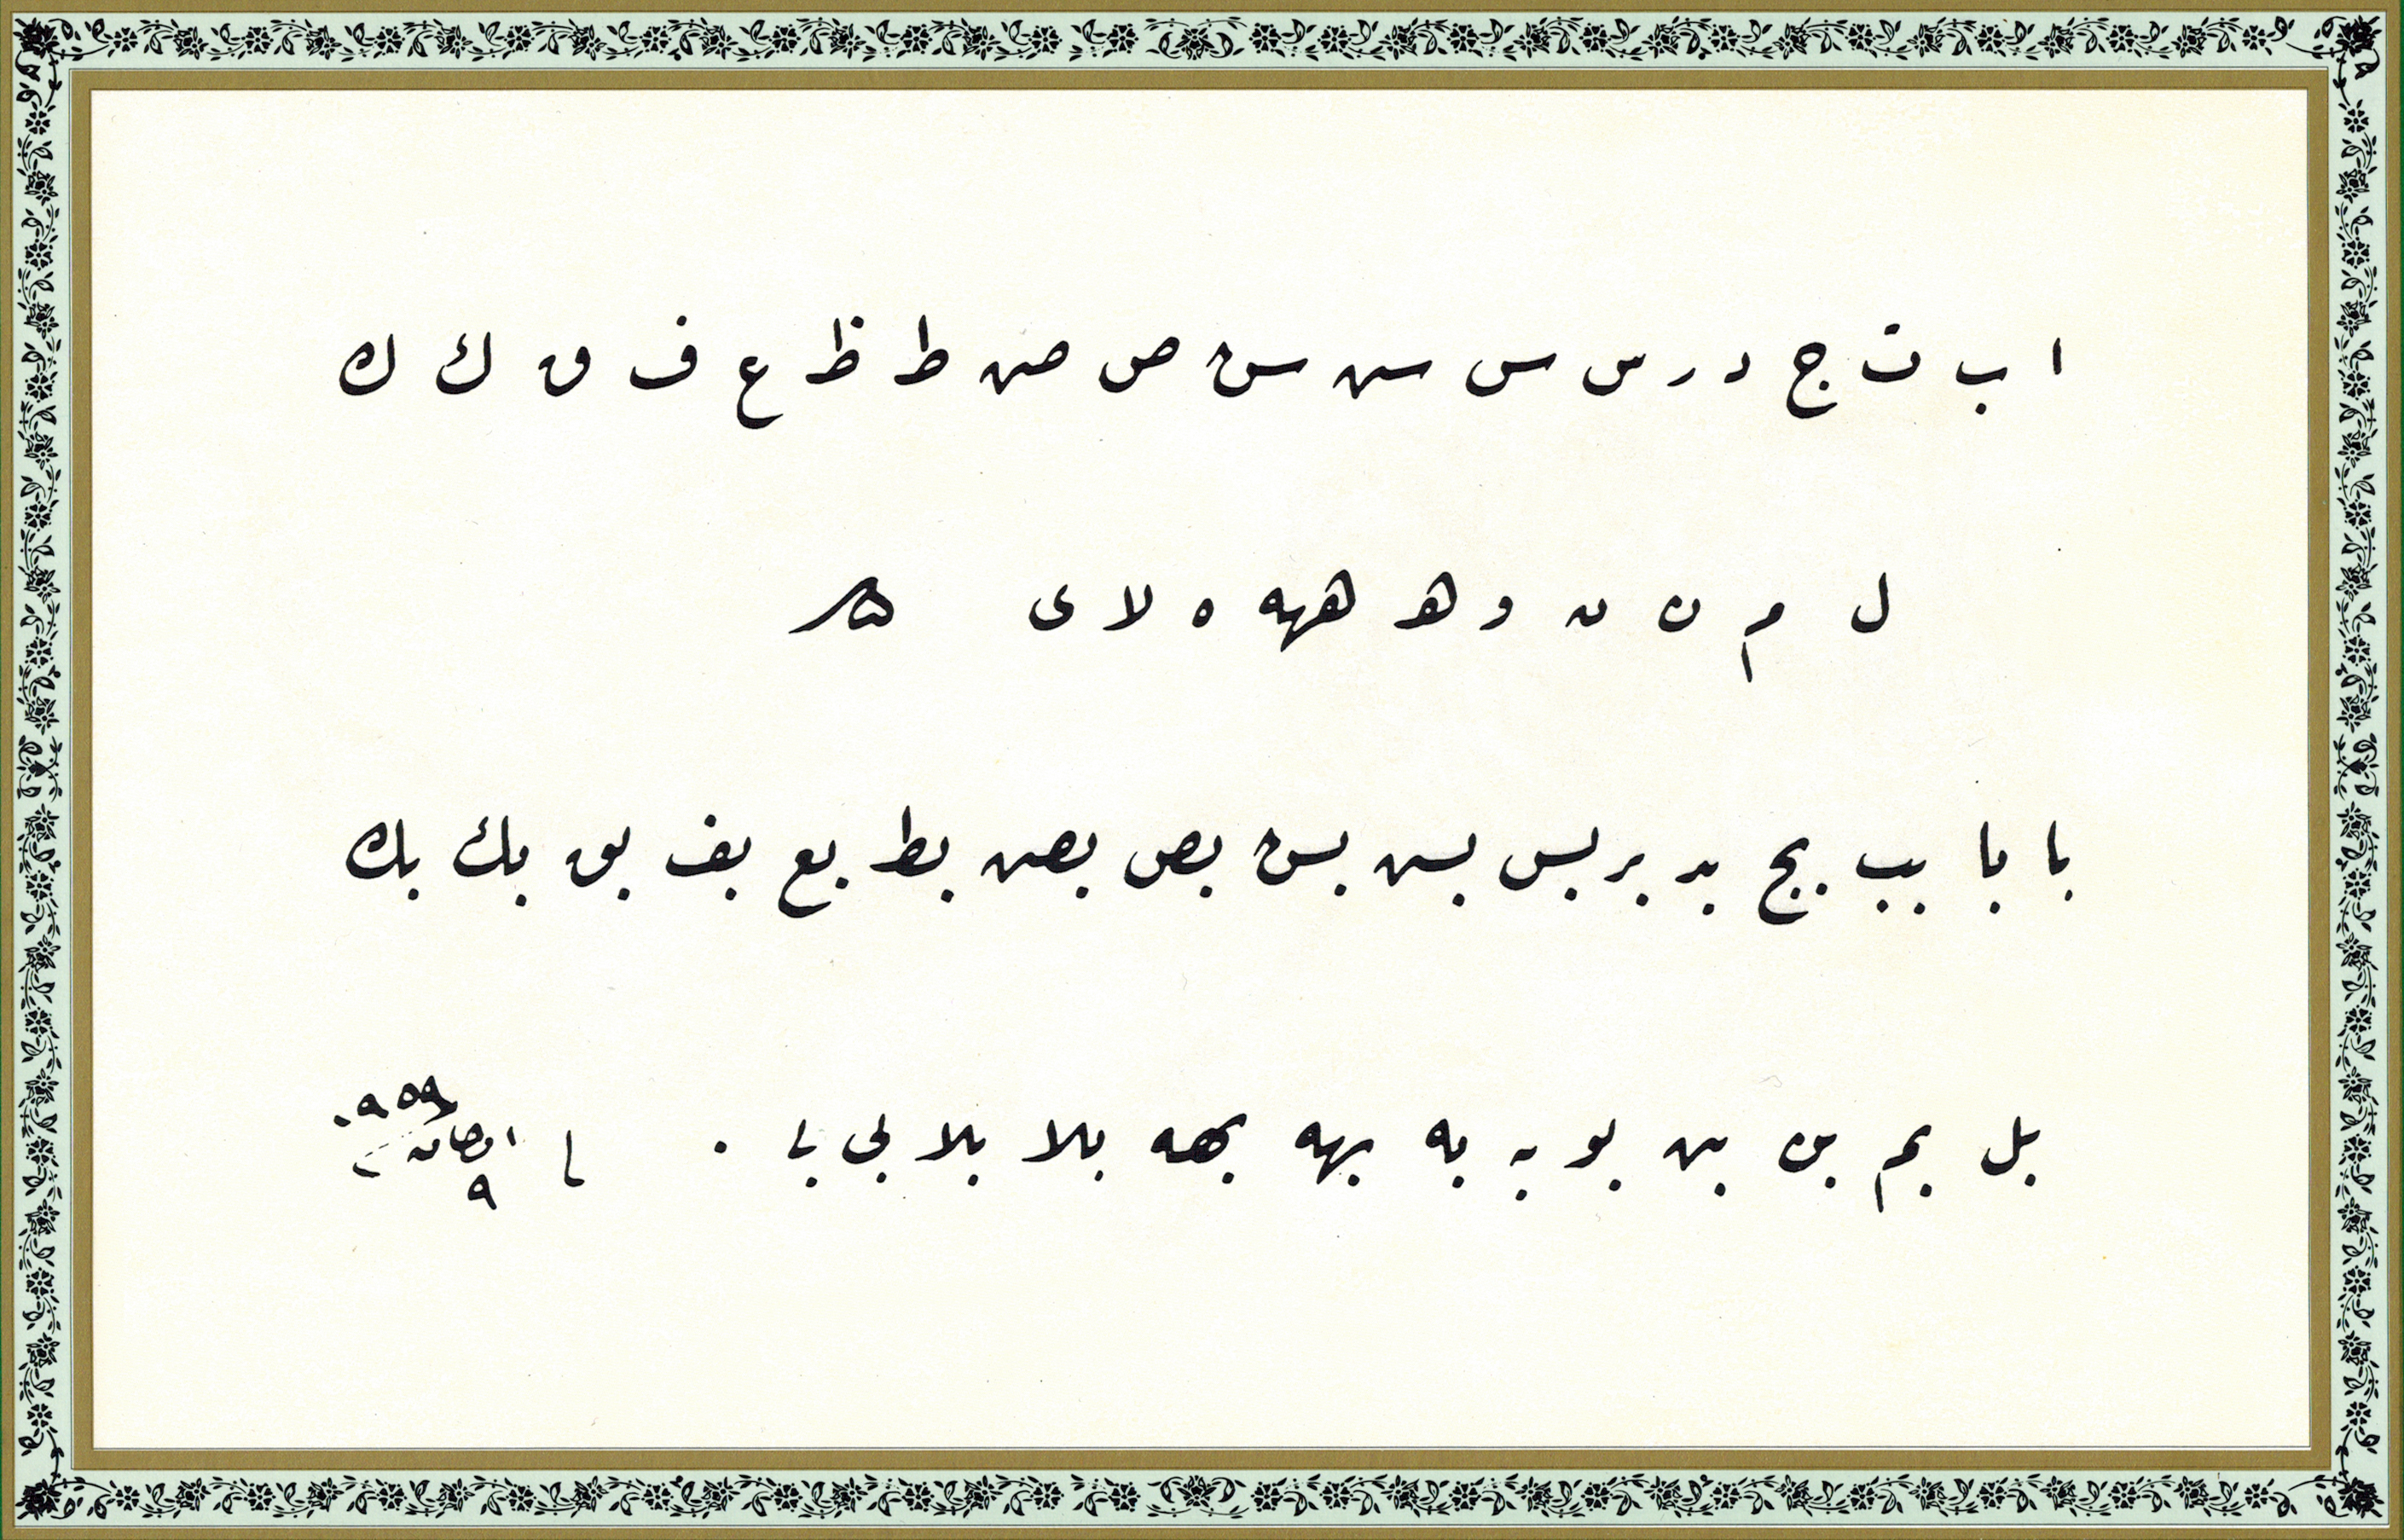 ا ب ت ج د ر س س س س ص ص ط ظ ع ف ق ك ك
ل م ن ن و ه ههه ه لا ى
با با بب بج بد بر بس بس بس بص بص بط بع بف بق بك بك
بل بم بن بن بو به به بهه بهه بلا بلا بى بى